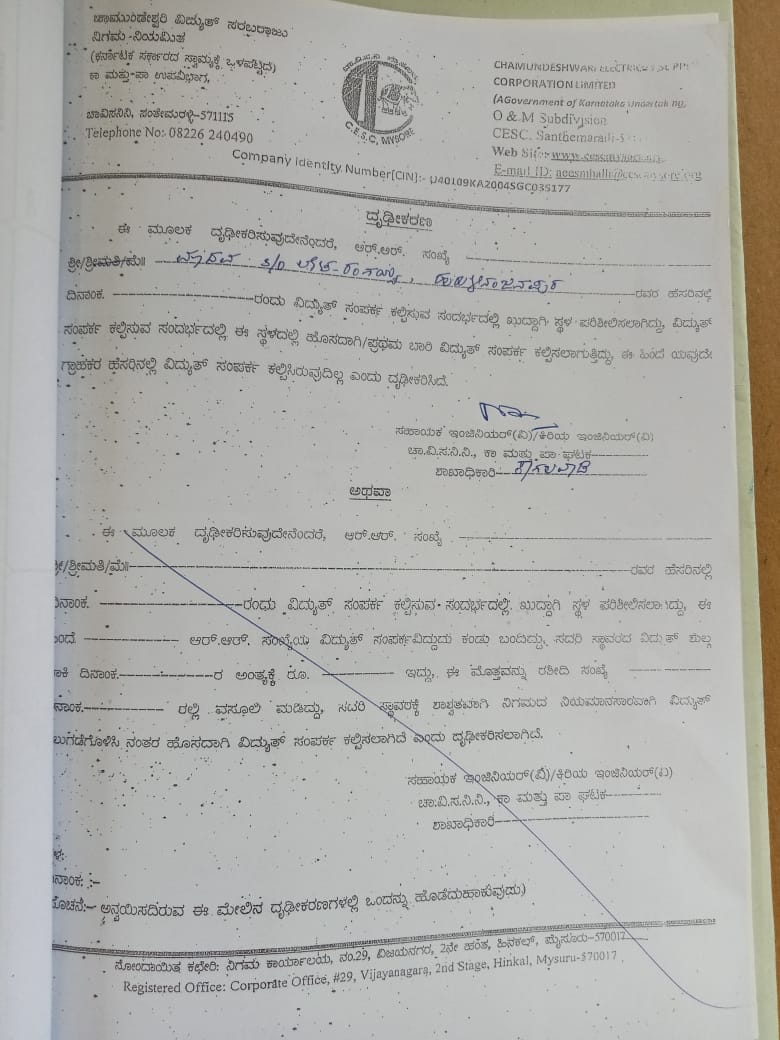 ಚಾಮುಂಡೇಶ್ವರಿ ವಿದ್ಯುತ್ ಸರಬರಾಜು
ನಿಗಮ ನಿಯಮಿತ
(ಕರ್ನಾಟಕ ಸರ್ಕಾರದ ಸ್ವಾಮ್ಯಕ್ಕೆ ಒಳಪಟ್ಟಿದೆ)
ಕಾ ಮತ್ತು ಪಾ ಉಪವಿಭಾಗ,
ಚಾವಿಸನಿನಿ, ಸಂತೇಮರಳ್ಳಿ-571115
Telephone No: 08226 240490
C.E.S.C, MYSORE
CHAMUNDESHWARI
CORPORATION LIMITED
(AGovernment of Karnataka
O & M Subdivision
CESC, Santhemaralli-5
Web Site:
E-mail ID:
Company Identity Number[CIN]:- U40109KA2004SGC035177
ದೃಢೀಕರಣ
ಈ ಮೂಲಕ ದೃಢೀಕರಿಸುವುದೇನೆಂದರೆ, ಆರ್.ಆರ್. ಸಂಖ್ಯೆ
ಶ್ರೀ/ಶ್ರೀಮತಿ/ಮೆ|| S/O ರವರ ಹೆಸರಿನಲ್ಲಿ
ದಿನಾಂಕ. ರಂದು ವಿದ್ಯುತ್ ಸಂಪರ್ಕ ಕಲ್ಪಿಸುವ ಸಂದರ್ಭದಲ್ಲಿ ಖುದ್ದಾಗಿ ಸ್ಥಳ ಪರಿಶೀಲಿಸಲಾಗಿದ್ದು, ವಿದ್ಯುತ್
ಸಂಪರ್ಕ ಕಲ್ಪಿಸುವ ಸಂದರ್ಭದಲ್ಲಿ ಈ ಸ್ಥಳದಲ್ಲಿ ಹೊಸದಾಗಿ/ಪ್ರಥಮ ಬಾರಿ ವಿದ್ಯುತ್ ಸಂಪರ್ಕ ಕಲ್ಪಿಸಲಾಗುತ್ತಿದ್ದು, ಈ ಹಿಂದೆ ಯವುದೇ
ಗ್ರಾಹಕರ ಹೆಸರಿನಲ್ಲಿ ವಿದ್ಯುತ್ ಸಂಪರ್ಕ ಕಲ್ಪಿಸಿರುವುದಿಲ್ಲ ಎಂದು ದೃಢೀಕರಿಸಿದೆ.
ಸಹಾಯಕ ಇಂಜಿನಿಯರ್(ವಿ)/ಕಿರಿಯ ಇಂಜಿನಿಯರ್(ವಿ)
ಚಾ.ವಿ.ಸ.ನಿ.ನಿ., ಕಾ ಮತ್ತು ಪಾ ಘಟಕ
ಶಾಖಾಧಿಕಾರಿ
ಅಥವಾ
ಈ ಮೂಲಕ ದೃಢೀಕರಿಸುವುದೇನೆಂದರೆ, ಆರ್.ಆರ್. ಸಂಖ್ಯೆ
ಶ್ರೀ/ಶ್ರೀಮತಿ/ಮೆ|| ರವರ ಹೆಸರಿನಲ್ಲಿ
ದಿನಾಂಕ. ರಂದು ವಿದ್ಯುತ್ ಸಂಪರ್ಕ ಕಲ್ಪಿಸುವ ಸಂದರ್ಭದಲ್ಲಿ ಖುದ್ದಾಗಿ ಸ್ಥಳ ಪರಿಶೀಲಿಸಲಾಗಿದ್ದು, ಈ
ಆರ್.ಆರ್. ಸಂಖ್ಯೆಯ ವಿದ್ಯುತ್ ಸಂಪರ್ಕವಿದ್ದುದು ಕಂಡು ಬಂದಿದ್ದು, ಸದರಿ ಸ್ಥಾವರದ ವಿದ್ಯುತ್ ಶುಲ್ಕ
ದಿನಾಂಕ. ರ ಅಂತ್ಯಕ್ಕೆ ರೂ. ಇದ್ದು, ಈ ಮೊತ್ತವನ್ನು ರಶೀದಿ ಸಂಖ್ಯೆ
ರಲ್ಲಿ ವಸೂಲಿ ಮಡಿದ್ದು, ಸದರಿ ಸ್ಥಾವರಕ್ಕೆ ಶಾಶ್ವತವಾಗಿ ನಿಗಮದ ನಿಯಮಾನಸಾರವಾಗಿ ವಿದ್ಯುತ್
ನಂತರ ಹೊಸದಾಗಿ ವಿದ್ಯುತ್ ಸಂಪರ್ಕ ಕಲ್ಪಿಸಲಾಗಿದೆ ಎಂದು ದೃಢೀಕರಿಸಲಾಗಿದೆ.
ಸಹಾಯಕ ಇಂಜಿನಿಯರ್(ವಿ)/ಕಿರಿಯ ಇಂಜಿನಿಯರ್(ವಿ)
ಚಾ.ವಿ.ಸ.ನಿ.ನಿ., ಕಾ ಮತ್ತು ಪಾ ಘಟಕ
ಶಾಖಾಧಿಕಾರಿ
ಅನ್ವಯಿಸದಿರುವ ಈ ಮೇಲಿನ ದೃಢೀಕರಣಗಳಲ್ಲಿ ಒಂದನ್ನು ಹೊಡೆದುಹಾಕುವುದು)
ನೋಂದಾಯಿತ ಕಛೇರಿ: ನಿಗಮ ಕಾರ್ಯಾಲಯ, ನಂ.29, ವಿಜಯನಗರ, 2ನೇ ಹಂತ, ಹಿನಕಲ್, ಮೈಸೂರು-570017
Registered Office: Corporate Office, #29, Vijayanagara, 2nd Stage, Hinkal, Mysuru-570017